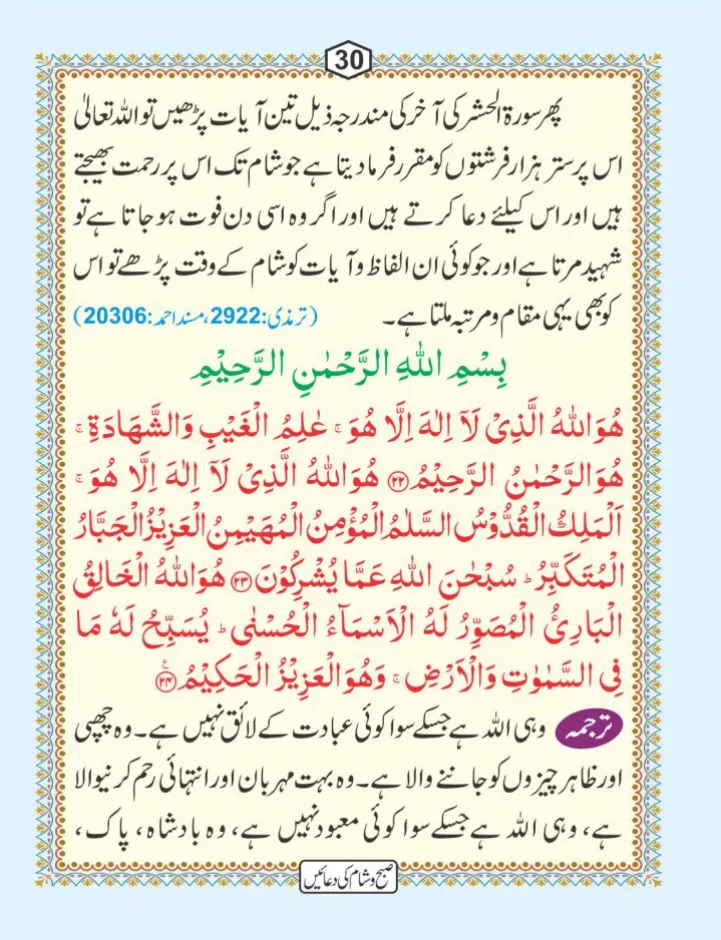 30
پھر سورۃ الحشر کی آخر کی مندرجہ ذیل تین آیات پڑھیں تو اللہ تعالیٰ
اس پر ستر ہزار فرشتوں کو مقرر فرما دیتا ہے جو شام تک اس پر رحمت بھیجتے
ہیں اور اس کیلئے دعا کرتے ہیں اور اگر وہ اسی دن فوت ہو جاتا ہے تو
شہید مرتا ہے اور جو کوئی ان الفاظ و آیات کو شام کے وقت پڑھے تو اس
کو بھی یہی مقام و مرتبہ ملتا ہے۔ (ترمذی:2922، مسند احمد:20306)
بِسْمِ اللهِ الرَّحْمٰنِ الرَّحِيْمِ
هُوَ اللهُ الَّذِىْ لَآ اِلٰهَ اِلَّا هُوَ ۚ عٰلِمُ الْغَيْبِ وَالشَّهَادَةِ ۚ
هُوَ الرَّحْمٰنُ الرَّحِيْمُ ﴿٢٢﴾ هُوَ اللهُ الَّذِىْ لَآ اِلٰهَ اِلَّا هُوَ ۚ
اَلْمَلِكُ الْقُدُّوْسُ السَّلٰمُ الْمُؤْمِنُ الْمُهَيْمِنُ الْعَزِيْزُ الْجَبَّارُ
الْمُتَكَبِّرُ ؕ سُبْحٰنَ اللهِ عَمَّا يُشْرِكُوْنَ ﴿٢٣﴾ هُوَ اللهُ الْخَالِقُ
الْبَارِئُ الْمُصَوِّرُ لَهُ الْاَسْمَآءُ الْحُسْنٰى ؕ يُسَبِّحُ لَهٗ مَا
فِى السَّمٰوٰتِ وَالْاَرْضِ ۚ وَهُوَ الْعَزِيْزُ الْحَكِيْمُ ﴿٢٤﴾
ترجمہ وہی اللہ ہے جسکے سوا کوئی عبادت کے لائق نہیں ہے۔ وہ چھپی
اور ظاہر چیزوں کو جاننے والا ہے۔ وہ بہت مہربان اور انتہائی رحم کرنیوالا
ہے، وہی اللہ ہے جسکے سوا کوئی معبود نہیں ہے، وہ بادشاہ، پاک،
صبح و شام کی دعائیں